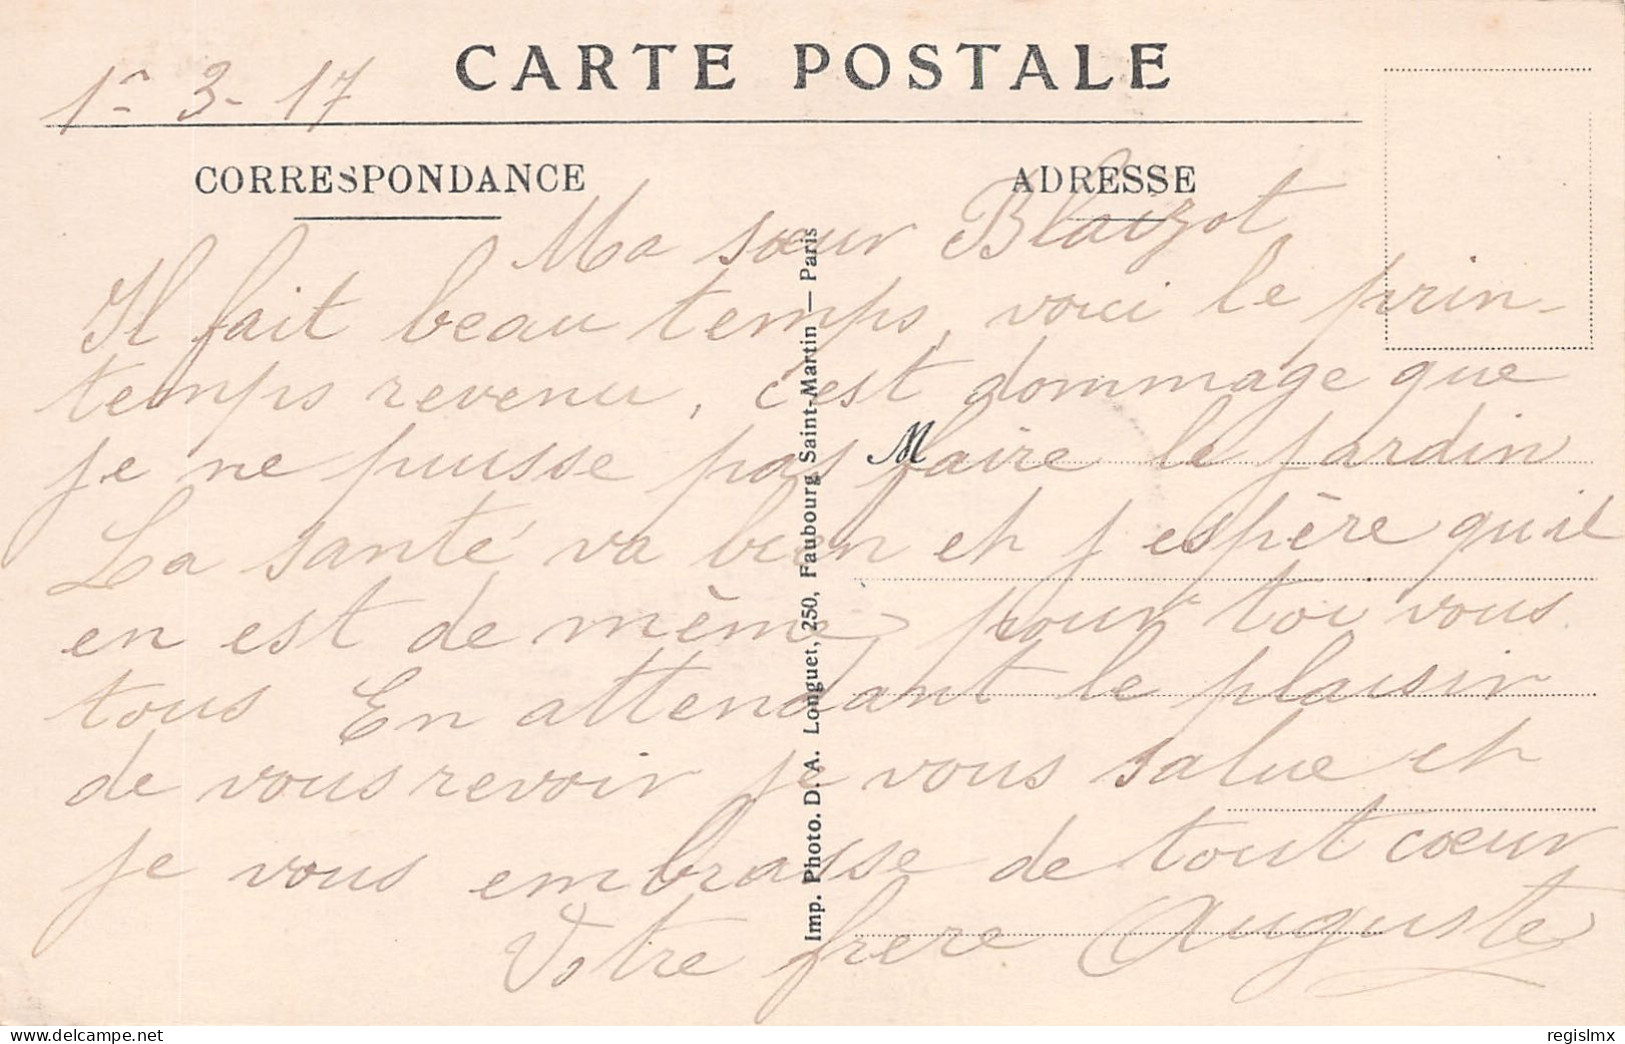 CARTE POSTALE
1r 3 - 17
CORRESPONDANCE
ADRESSE
Ma sœur Blaizot
Il fait beau temps, voici le prin-
temps revenu, c'est dommage que
je ne puisse pas faire le jardin
M
La santé va bien et j espère quil
en est de même pour toi vous
tous En attendant le plaisir
de vous revoir je vous salue et
je vous embrasse de tout cœur
Votre frere Auguste
Imp. Photo. D. A. Longuet, 250, Faubourg Saint-Martin — Paris
delcampe.net
regislmx